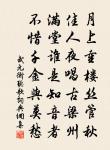 月上重楼丝管秋
佳人夜唱古梁州
满堂谁是知音者
不惜千金与莫愁
武元衡听歌词 奂阑书